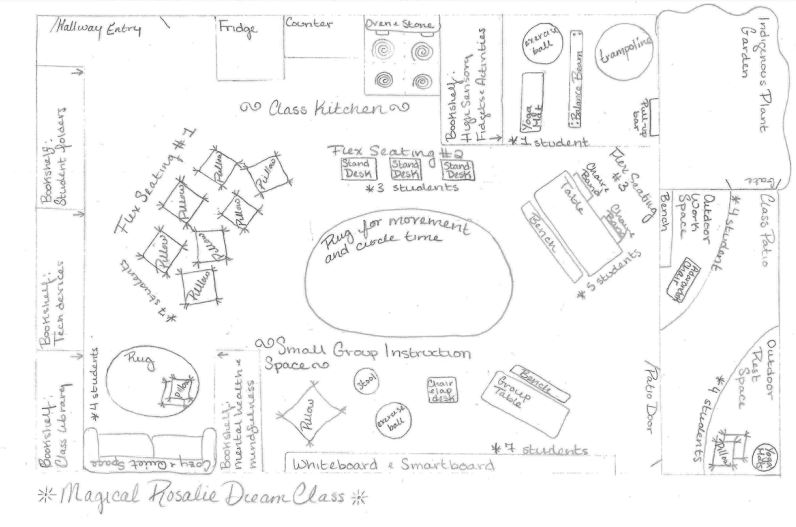 Hallway Entry
Fridge
Counter
Oven & Stove
Bookshelf:
High Sensory
Fidgets & Activities
exercise
ball
Yoga
Mat
Balance Beam
trampoline
Pull-up
bar
*1 student
Indigenous Plant
Garden
Gate
Class Kitchen
Bookshelf:
Student folders
Flex Seating #1
Pillow
Pillow
Pillow
Pillow
Pillow
Pillow
Pillow
*7 students
Flex Seating #2
Stand
Desk
Stand
Desk
Stand
Desk
*3 students
Flex Seating
#3
Table
Bench
*5 students
Rug for movement
and circle time
Class Patio
*4 student
Outdoor
Work
Space
Bench
Chair
Bookshelf:
Tech devices
Bookshelf:
Class Library
*4 students
Rug
Pillow
Cozy & Quiet Space
Bookshelf:
mental health &
mindfulness
Small Group Instruction
Space
Pillow
Stool
exercise
ball
Chair
& lap
desk
Bench
Group
Table
*7 students
Whiteboard & Smartboard
Patio Door
Outdoor
Rest
Space
*4 students
Pillow
Yoga
Mats
Magical Rosalie Dream Class